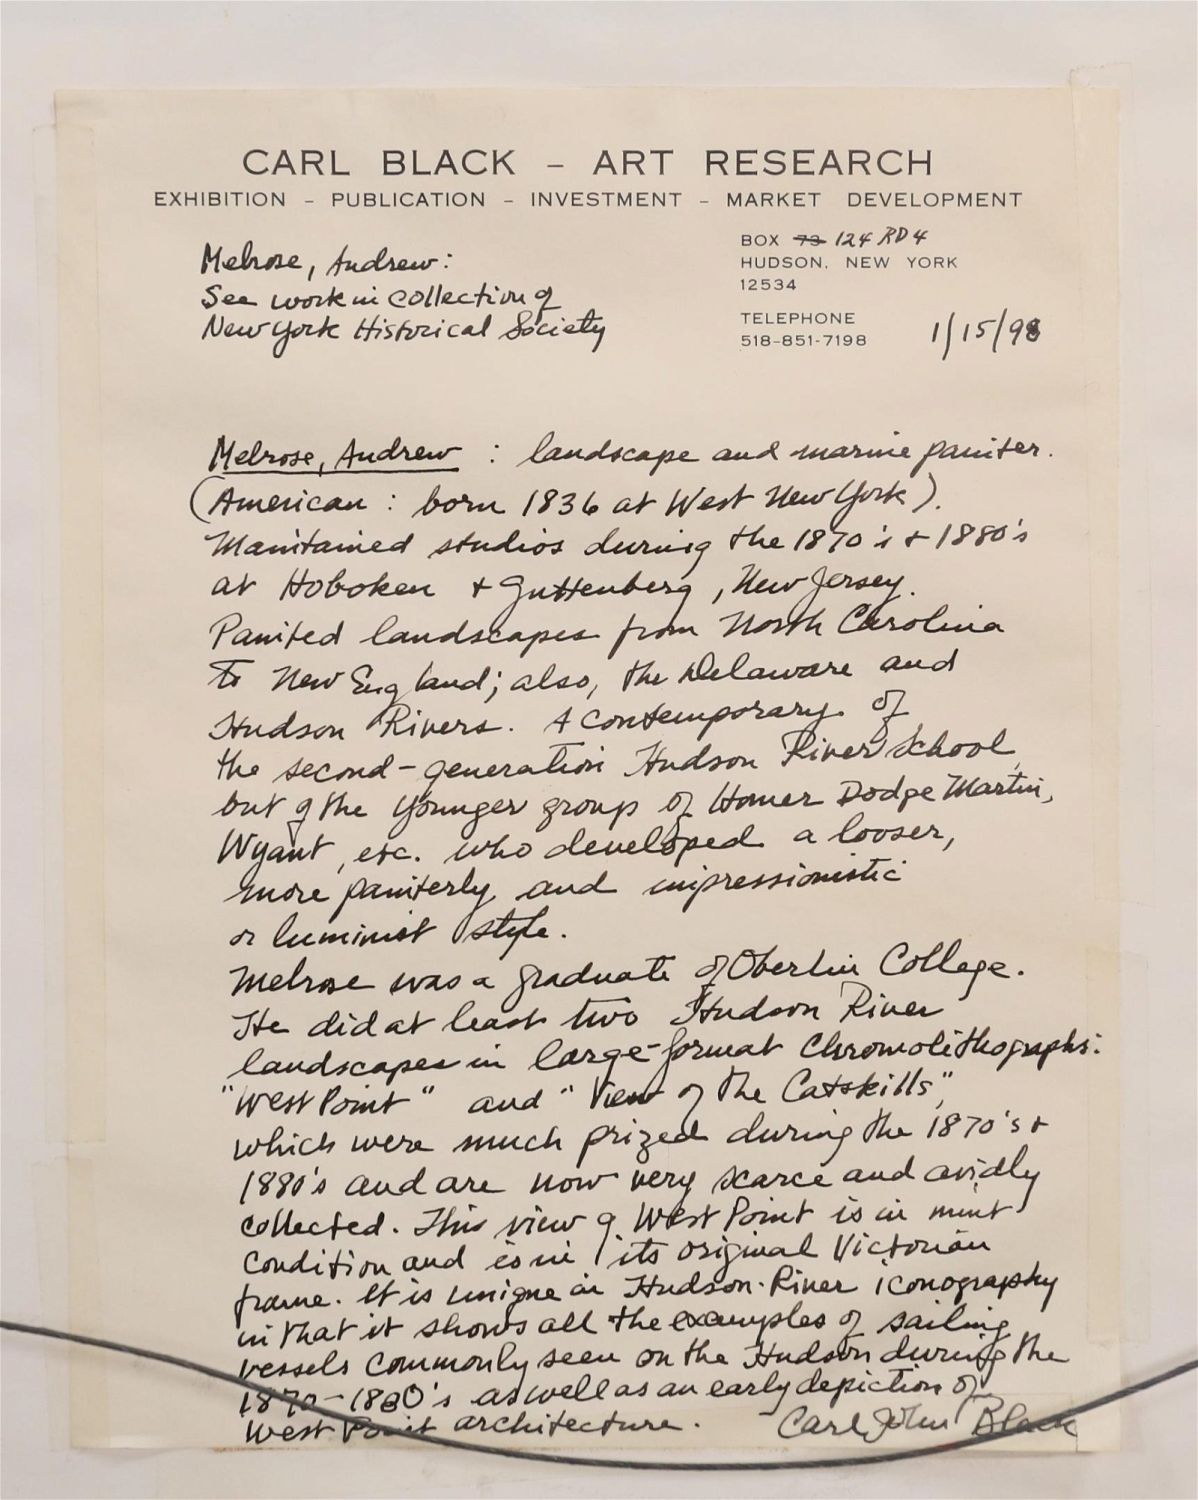 CARL BLACK – ART RESEARCH
EXHIBITION – PUBLICATION – INVESTMENT – MARKET DEVELOPMENT
BOX 73 124 RD 4
HUDSON, NEW YORK
12534
TELEPHONE
518-851-7198
1/15/98
Melrose, Andrew:
See work in collection of
New York Historical Society
Melrose, Andrew : landscape and marine painter.
(American : born 1836 at West New York).
Maintained studios during the 1870's + 1880's
at Hoboken + Guttenberg, New Jersey.
Painted landscapes from North Carolina
to New England; also, the Delaware and
Hudson Rivers. A contemporary of
the second-generation Hudson River School,
but of the younger group of Homer Dodge Martin,
Wyant, etc. who developed a looser,
more painterly and impressionistic
or luminist style.
Melrose was a graduate of Oberlin College.
He did at least two Hudson River
landscapes in large-format Chromolithographs:
"West Point" and "View of the Catskills,"
which were much prized during the 1870's +
1880's and are now very scarce and avidly
collected. This view of West Point is in mint
condition and is in its original Victorian
frame. It is unique in Hudson-River iconography
in that it shows all the examples of sailing
vessels commonly seen on the Hudson during the
1870-1880's as well as an early depiction of
West Point architecture.
Carl John Black